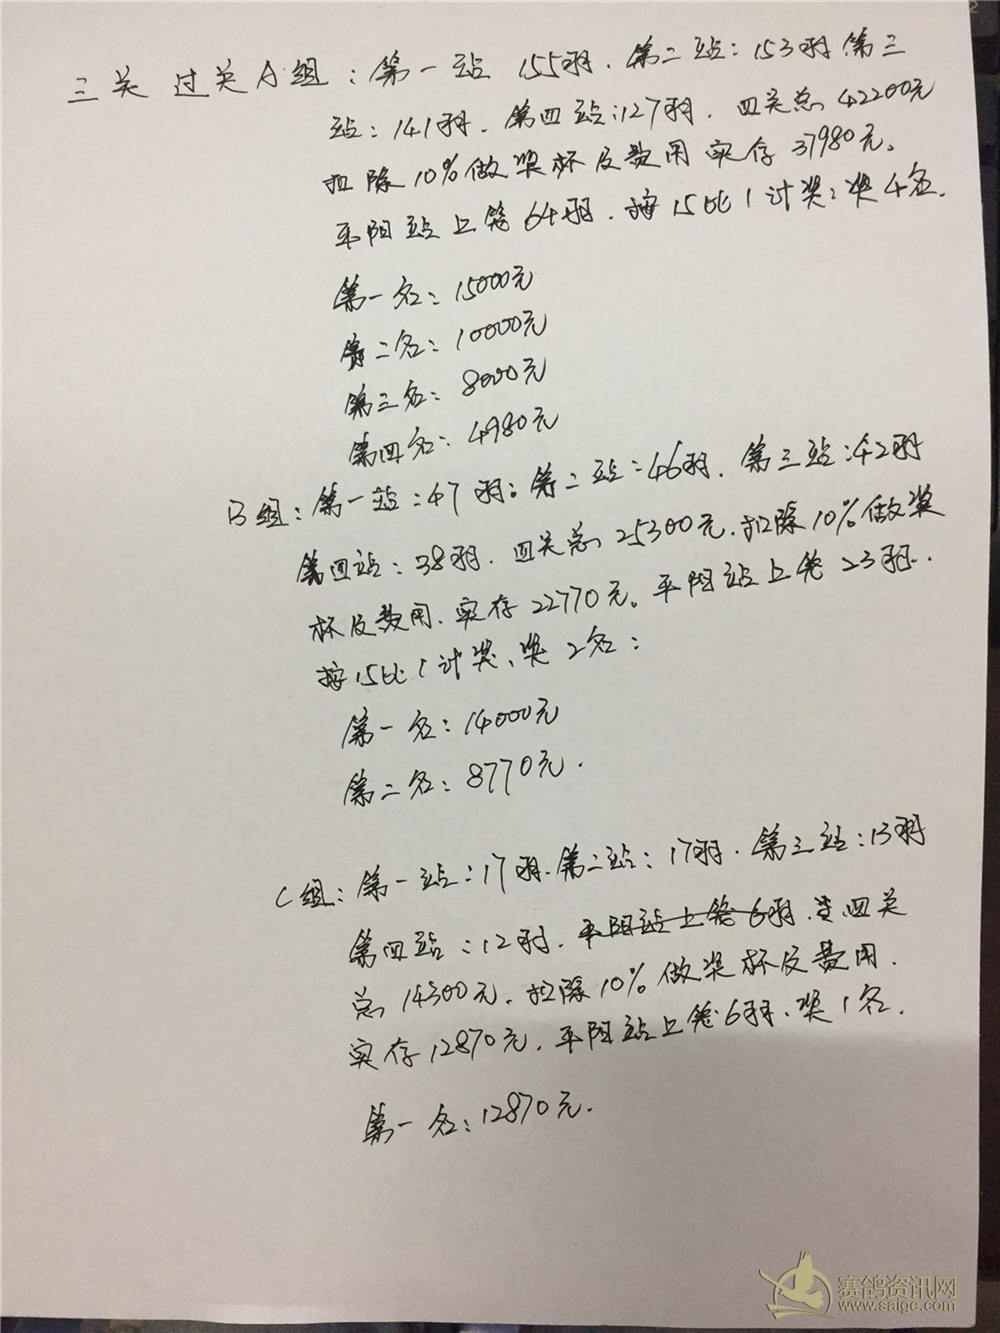 三关 过关A组：第一站 155羽．第二站：153羽 第三
站：141羽．第四站：127羽．四关总 42200元
扣除10%做奖杯及费用 实存37980元。
平阳站上笼64羽．按15比1计奖：奖4名．
第一名：15000元
第二名：10000元
第三名：8000元
第四名：4980元
B组：第一站：47羽。第二站：46羽．第三站：42羽
第四站：38羽．四关总 25300元．扣除10%做奖
杯及费用．实存22770元。平阳站上笼23羽．
按15比1计奖、奖2名：
第一名：14000元
第二名：8770元．
C组：第一站：17羽．第二站：17羽．第三站：13羽
第四站：12羽．平阳站上笼6羽．四关
总14300元．扣除10%做奖杯及费用．
实存12870元．平阳站上笼6羽、奖1名．
第一名：12870元．
赛鸽资讯网
www.saigc.com